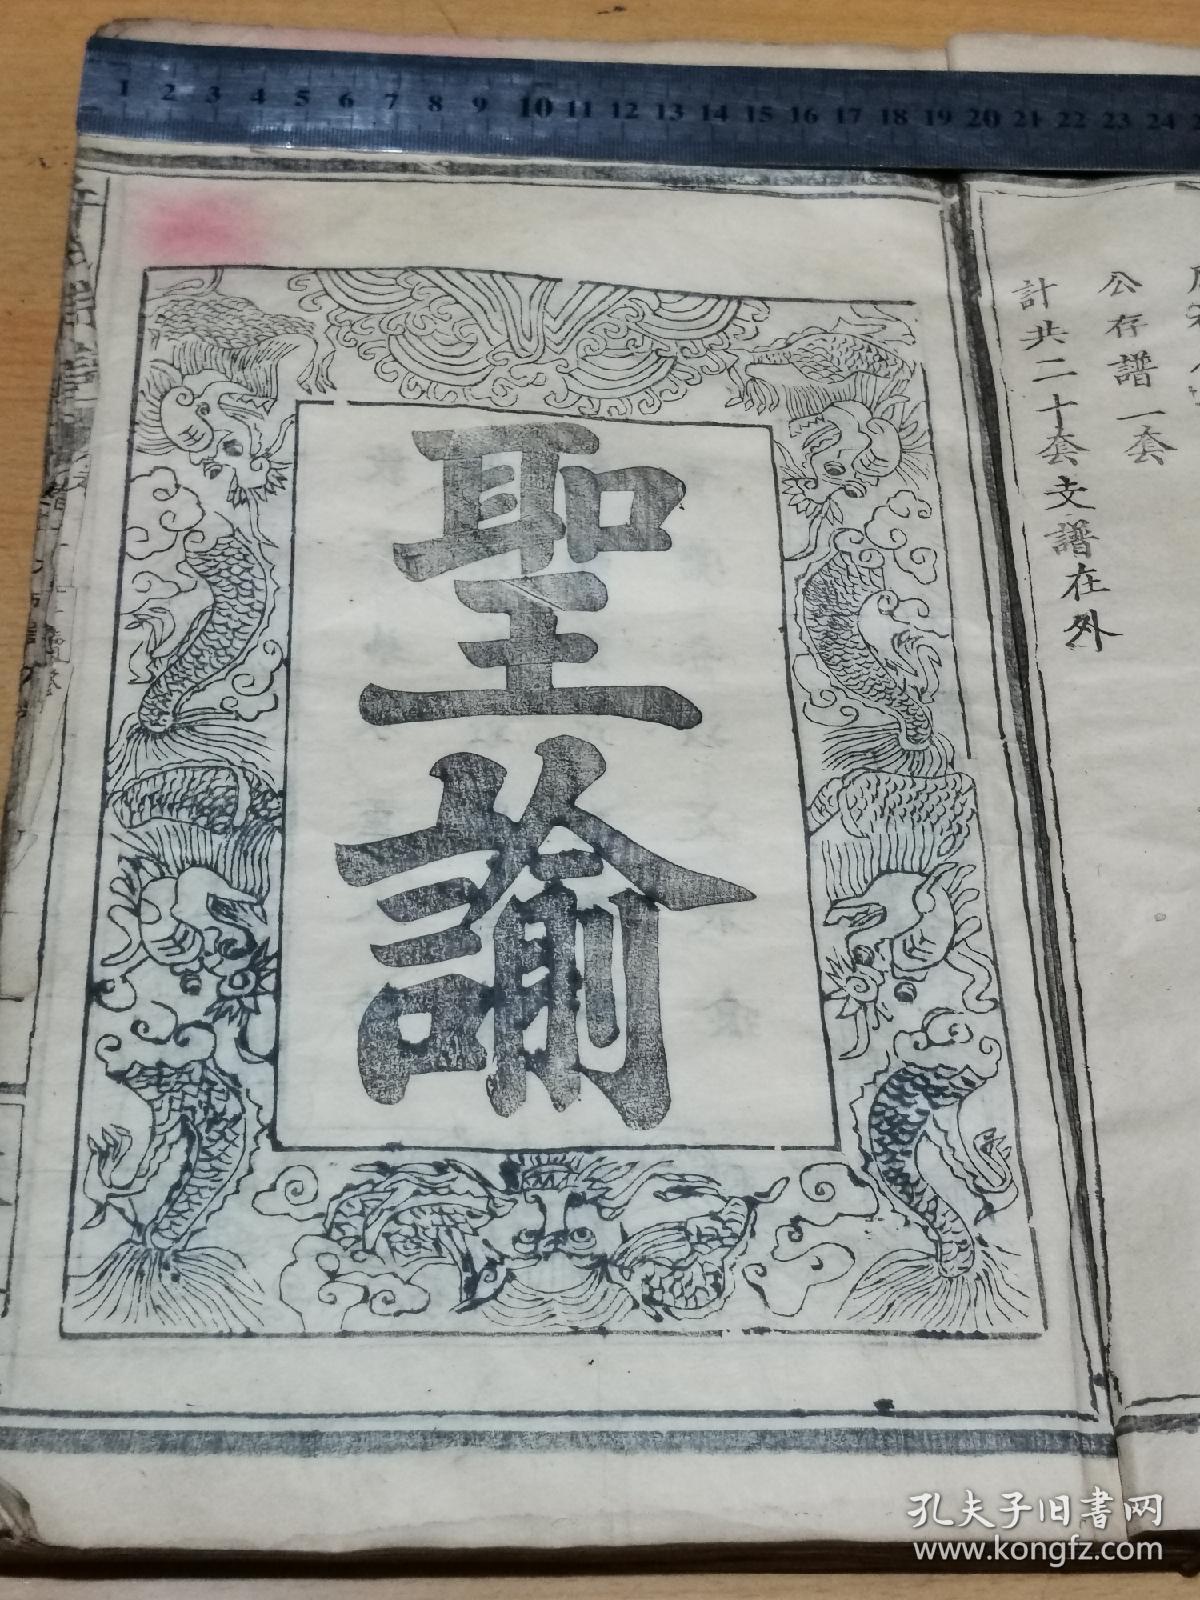 1 2 3 4 5 6 7 8 9 10 11 12 13 14 15 16 17 18 19 20 21 22 23 24
公存譜一套
計共二十套支譜在外
聖諭
孔夫子旧书网
www.kongfz.com